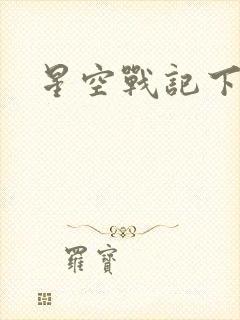 星空戰記下
羅寶